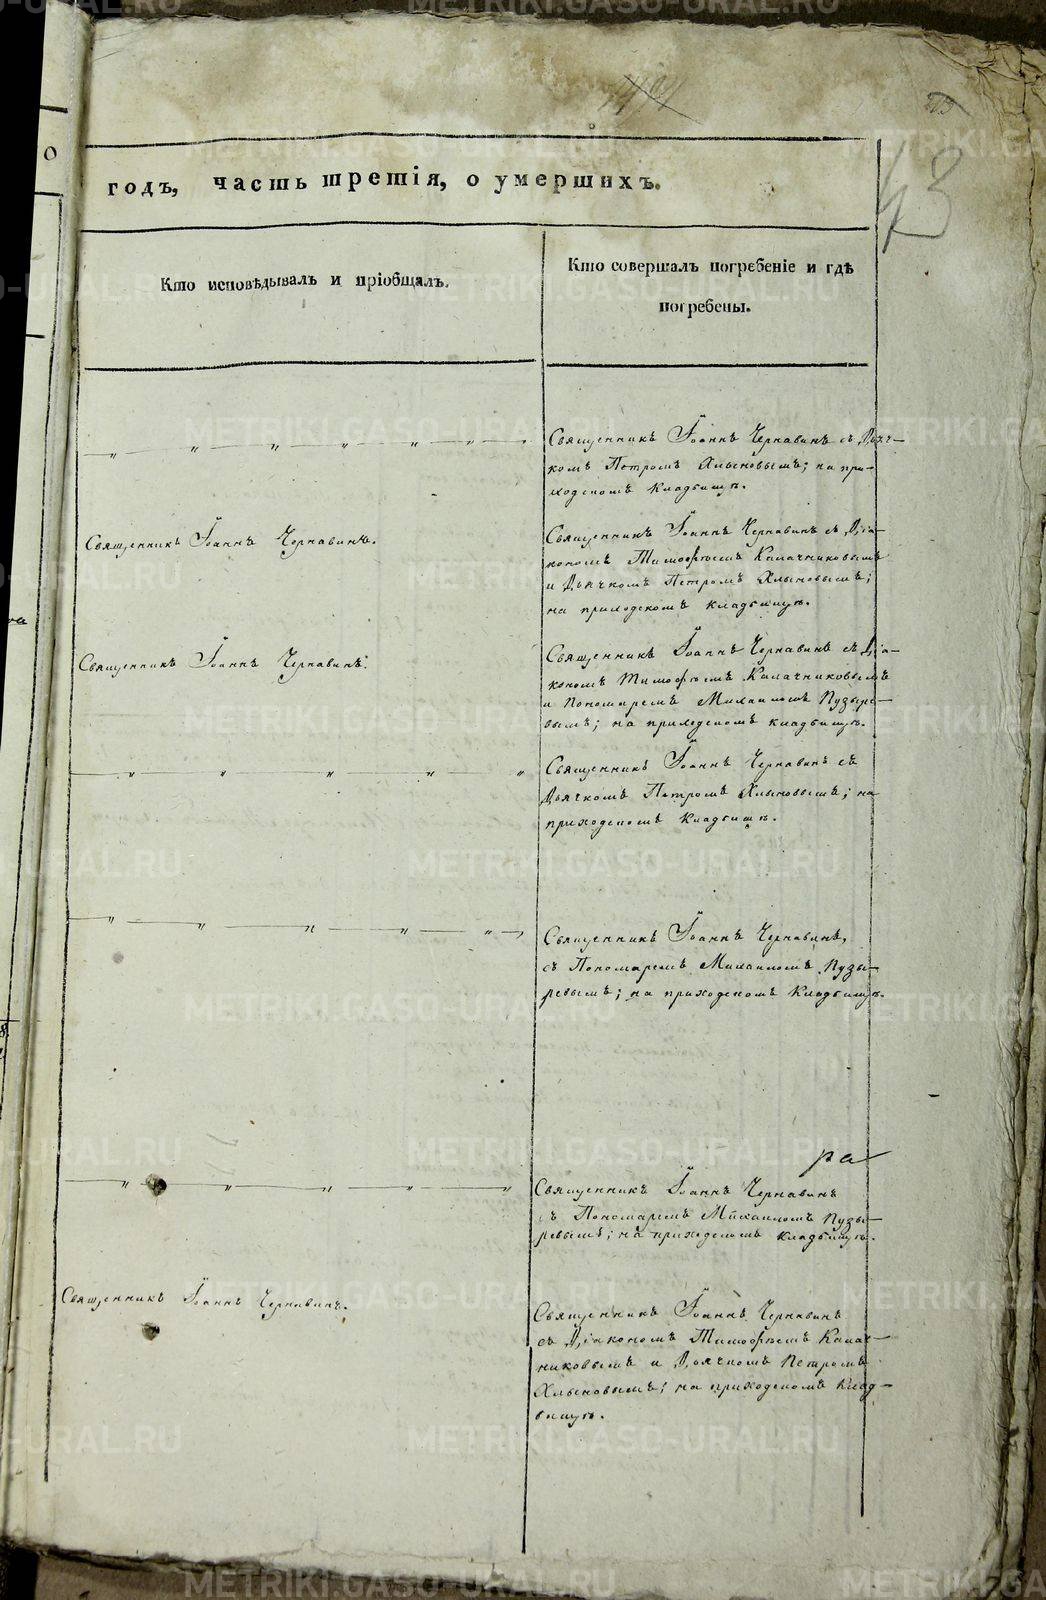 213
43
годъ, часть третія, о умершихъ.
Кто исповѣдывалъ и пріобщалъ.
Кто совершалъ погребеніе и гдѣ
погребены.
Священникъ Іоаннъ Чернавинъ съ Дьяч-
комъ Петромъ Хлыновымъ; на при-
ходскомъ кладбищѣ.
Священникъ Іоаннъ Чернавинъ.
Священникъ Іоаннъ Чернавинъ съ Діа-
кономъ Тимофѣемъ Калачниковымъ
и Дьячкомъ Петромъ Хлыновымъ;
на приходскомъ кладбищѣ.
Священникъ Іоаннъ Чернавинъ.
Священникъ Іоаннъ Чернавинъ съ Діа-
кономъ Тимофѣемъ Калачниковымъ
и Пономаремъ Михаиломъ Пузыре-
вымъ; на приходскомъ кладбищѣ.
Священникъ Іоаннъ Чернавинъ съ
Дьячкомъ Петромъ Хлыновымъ; на
приходскомъ кладбищѣ.
Священникъ Іоаннъ Чернавинъ,
съ Пономаремъ Михаиломъ Пузы-
ревымъ; на приходскомъ кладбищѣ.
ра
Священникъ Іоаннъ Чернавинъ
съ Пономаремъ Михаиломъ Пузы-
ревымъ; на приходскомъ кладбищѣ.
Священникъ Іоаннъ Чернавинъ.
Священникъ Іоаннъ Чернавинъ
съ Діакономъ Тимофѣемъ Калач-
никовымъ и Дьячкомъ Петромъ
Хлыновымъ; на приходскомъ клад-
бищѣ.
METRIKI.GASO-URAL.RU